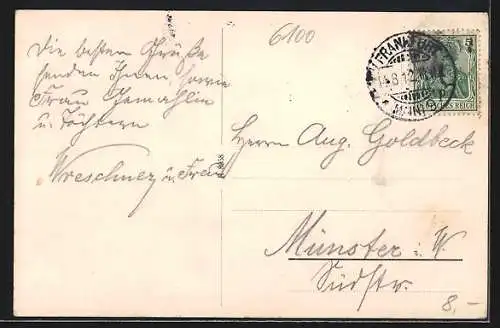 6100
Die besten Grüße
senden Ihnen sowie
Frau Gemahlin
u. Töchtern
Wreschner u. Frau
FRANKFURT
MAIN
5
DEUTSCHES REICH
Herrn Aug. Goldbeck
Münster i. W.
Südstr.
8,-